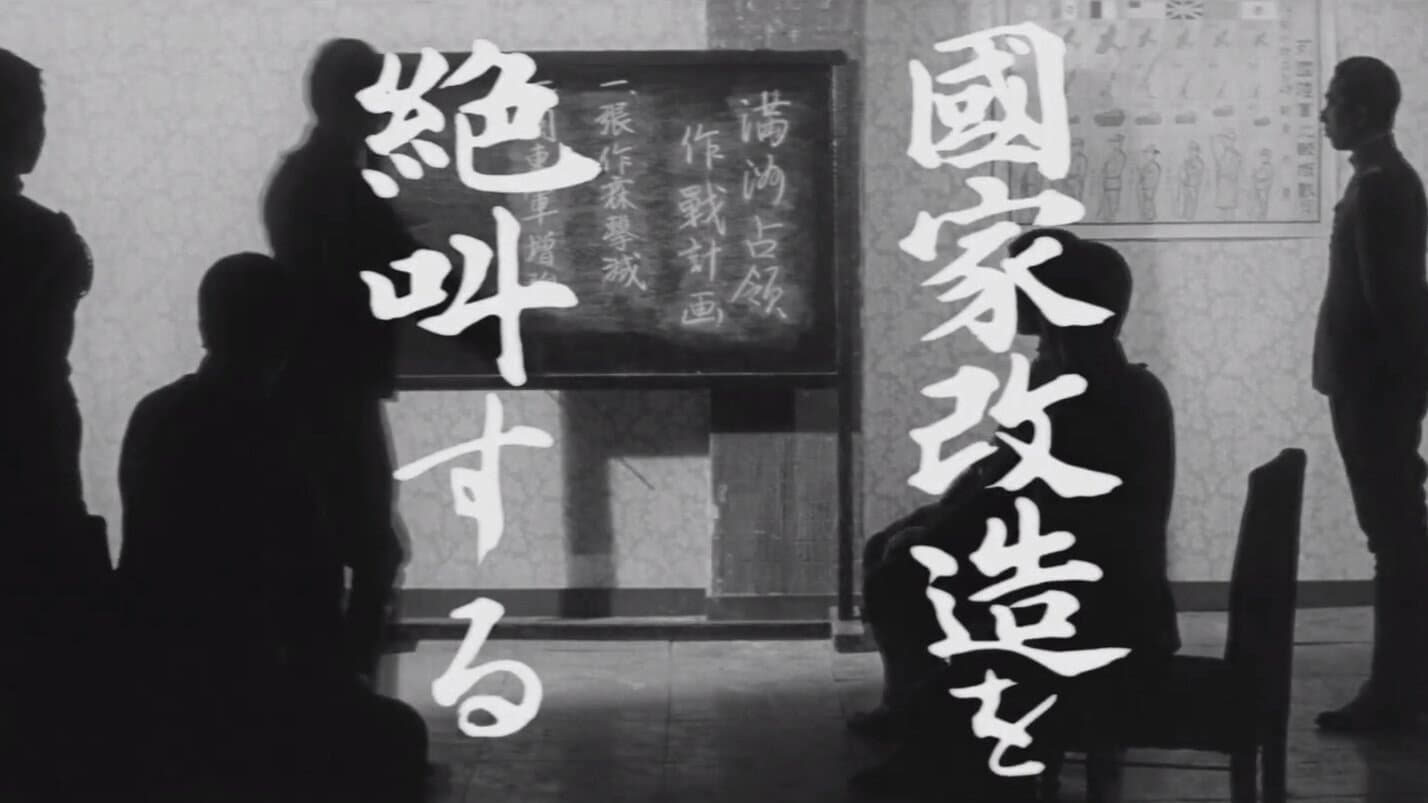 國家改造を
絶叫する
満洲占領
作戰計画
一、張作霖撃滅
軍増